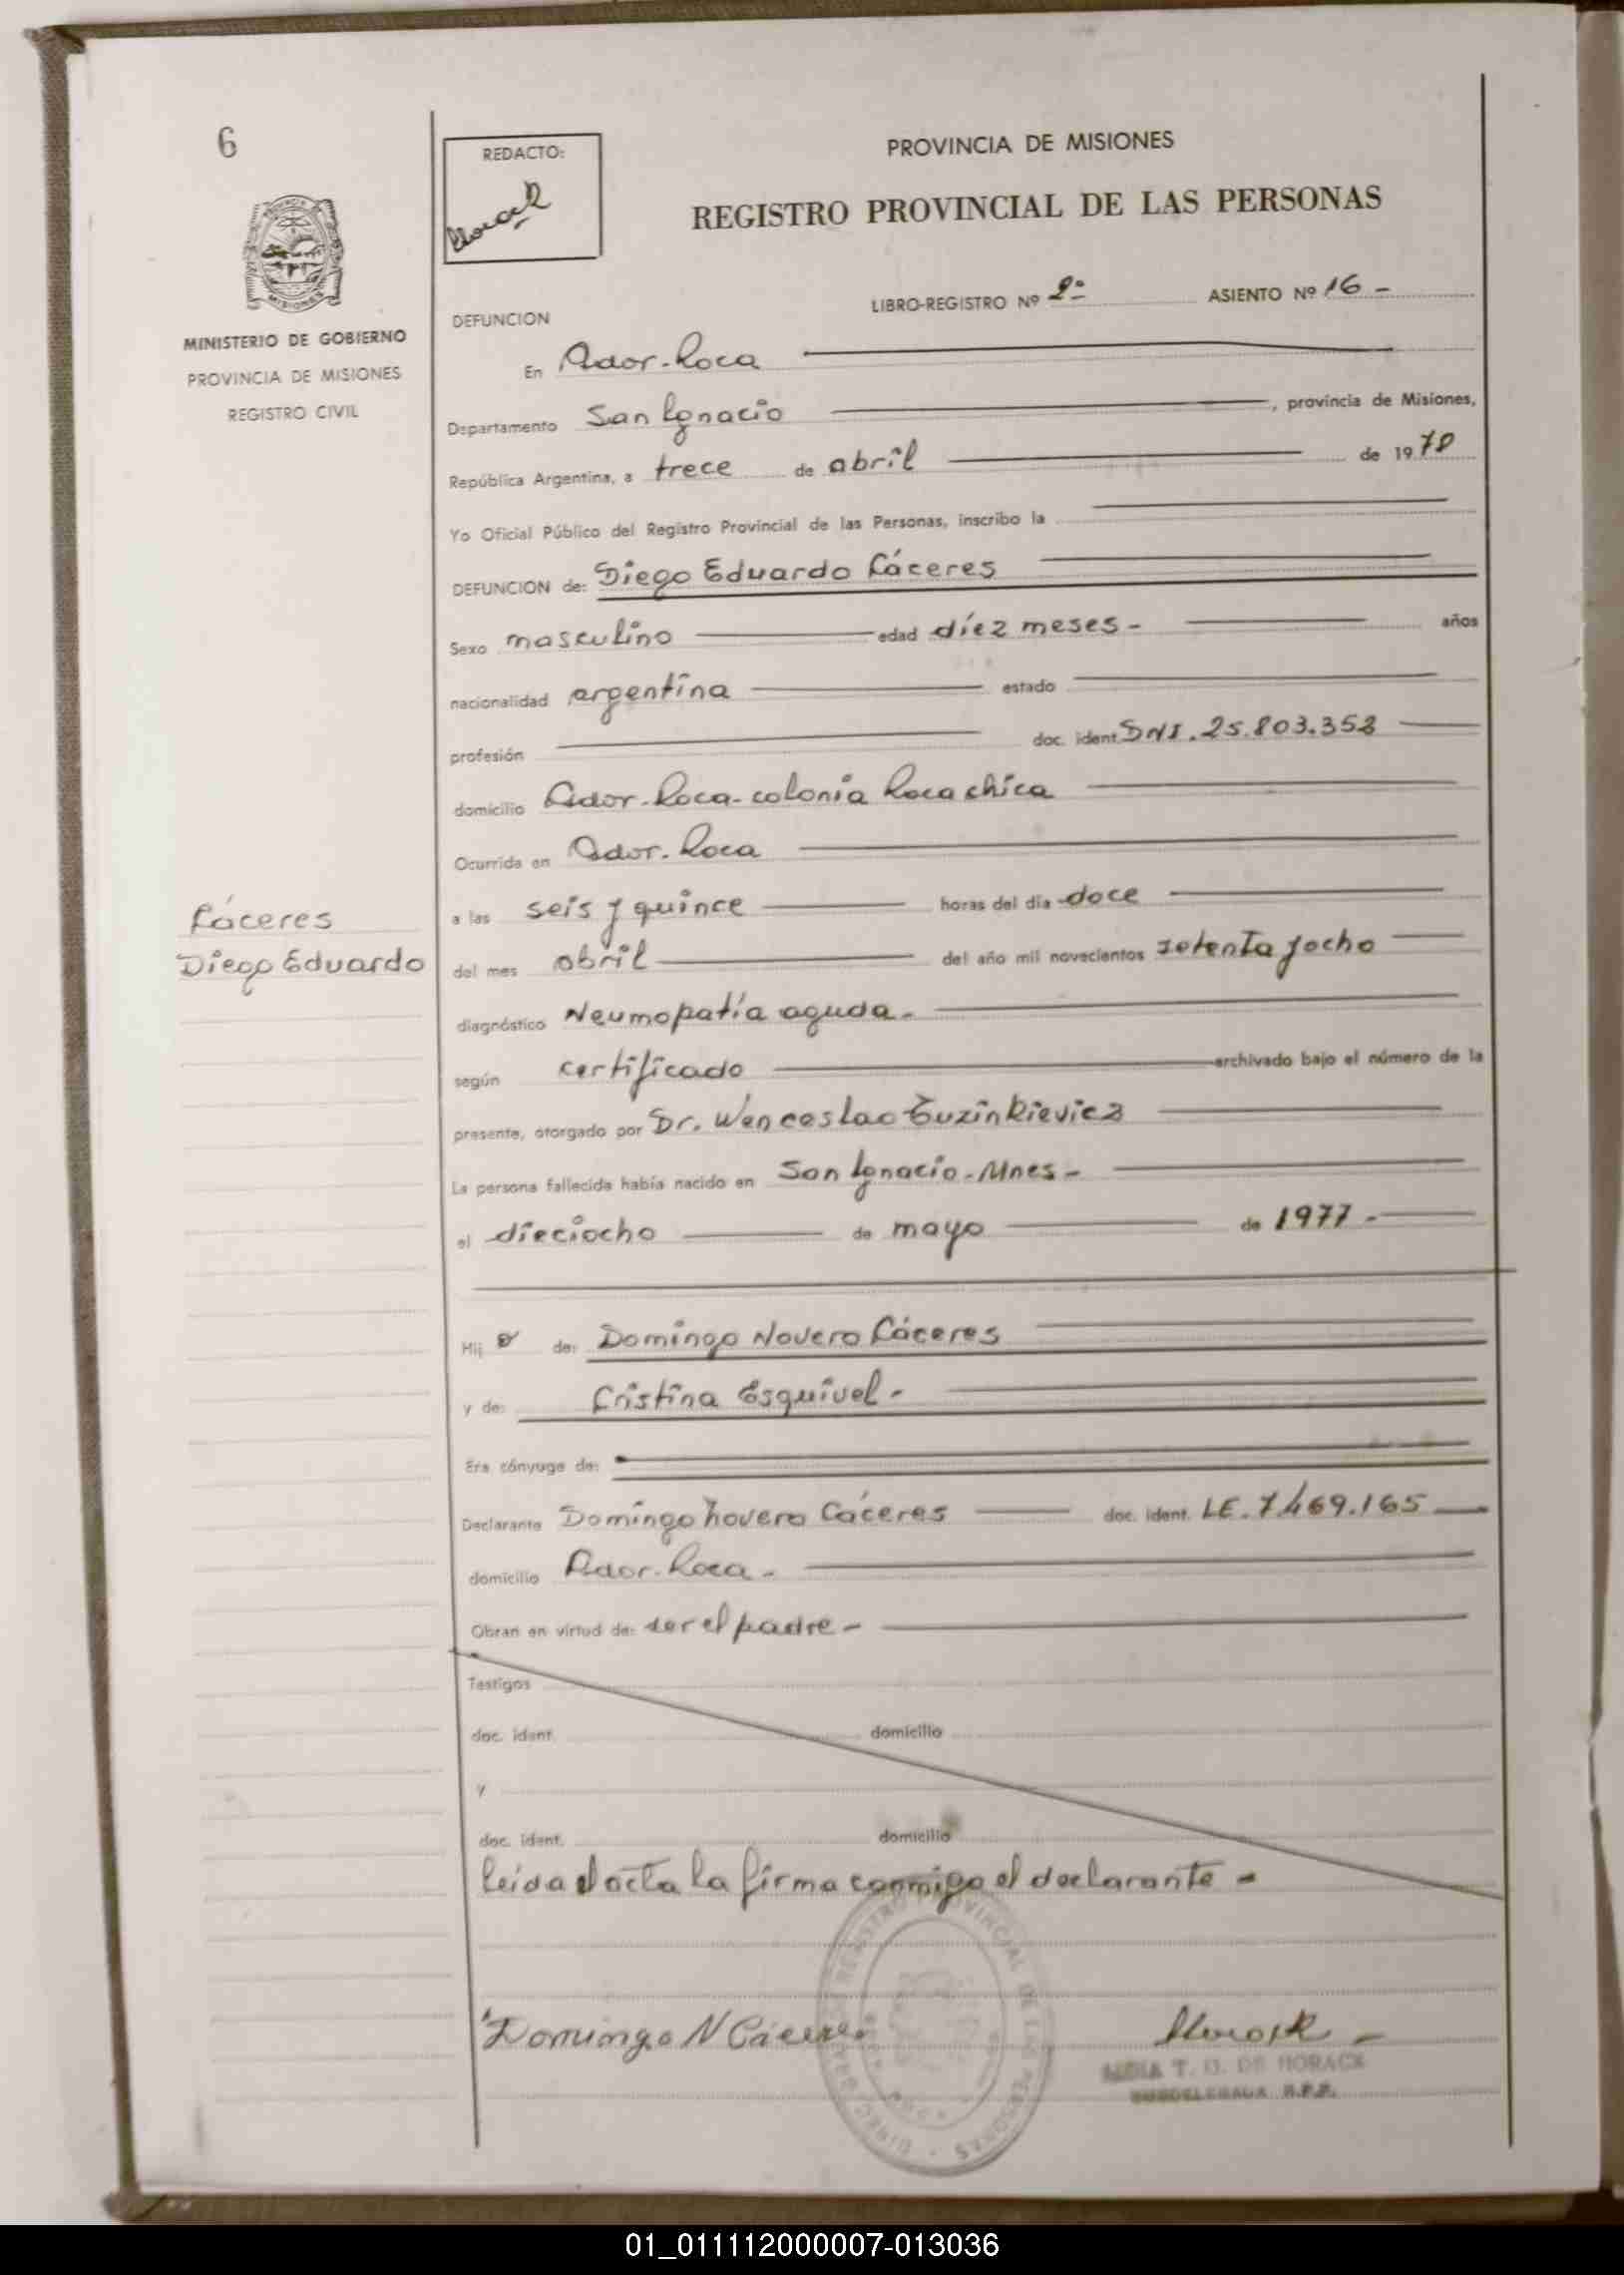 6
REDACTO:
PROVINCIA DE MISIONES
REGISTRO PROVINCIAL DE LAS PERSONAS
MISIONES
MINISTERIO DE GOBIERNO
PROVINCIA DE MISIONES
REGISTRO CIVIL
LIBRO-REGISTRO Nº 2º ASIENTO Nº 16 -
DEFUNCION
En Gdor. Roca
Departamento San Ignacio, provincia de Misiones,
República Argentina, a trece de abril de 1978
Yo Oficial Público del Registro Provincial de las Personas, inscribo la
DEFUNCION de: Diego Eduardo Cáceres
Sexo masculino edad díez meses - años
nacionalidad argentina estado
profesión doc. ident. DNI. 25.803.353
domicilio Gdor. Roca - colonia Roca chica
Ocurrida en Gdor. Roca
Cáceres
Diego Eduardo
a las seis y quince horas del día doce
del mes abril del año mil novecientos setenta y ocho
diagnóstico Neumopatía aguda -
según certificado archivado bajo el número de la
presente, otorgado por Dr. Wenceslao
La persona fallecida había nacido en San Ignacio - Mnes -
el dieciocho de mayo de 1977 -
Hij o de: Domingo Novero Cáceres
y de: Cristina Esquivel -
Era cónyuge de:
Declarante Domingo Novero Cáceres doc. ident. LE. 7.469.165
domicilio Gdor. Roca -
Obran en virtud de: ser el padre -
Testigos
doc. ident. domicilio
y
doc. ident. domicilio
Leída el acta la firma conmigo el declarante -
Domingo N Cáceres
REGISTRO PROVINCIAL DE LAS PERSONAS
T. O. DE HORACK
SUBDELEGADA R.P.P.
01_011112000007-013036